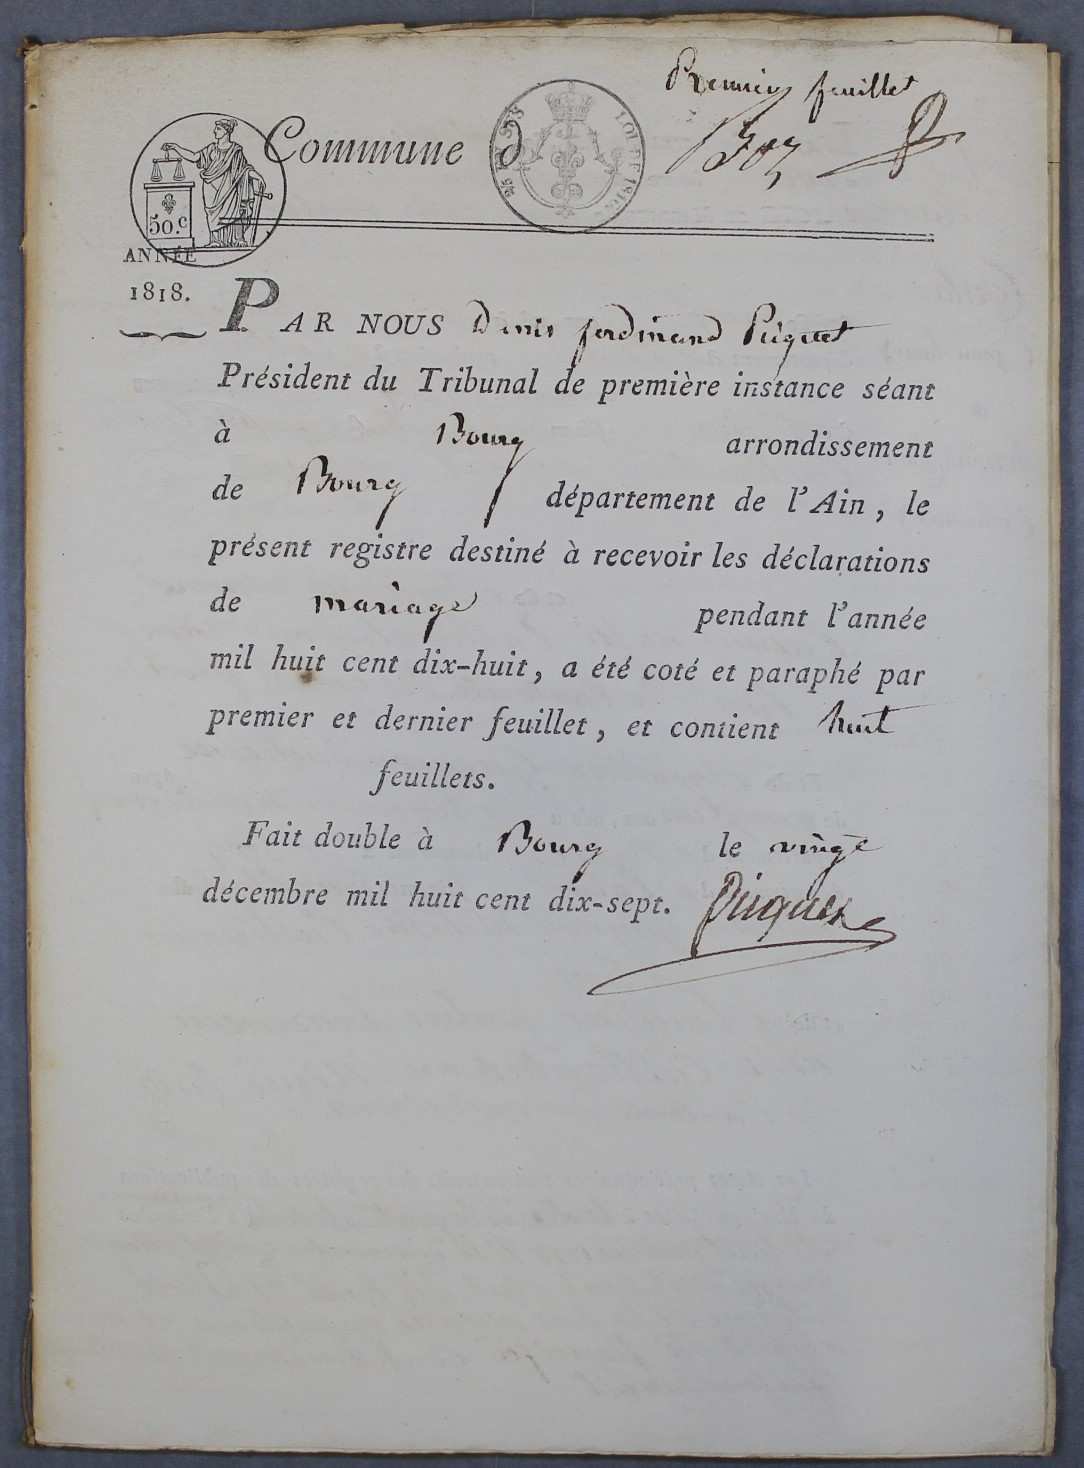 Premier feuillet
Commune d
LOI DE 1816
50.c
ANNÉE
1818.
PAR NOUS Denis ferdinand Piquet
Président du Tribunal de première instance séant
à Bourg arrondissement
de Bourg département de l'Ain, le
présent registre destiné à recevoir les déclarations
de mariage pendant l'année
mil huit cent dix-huit, a été coté et paraphé par
premier et dernier feuillet, et contient huit
feuillets.
Fait double à Bourg le vingt
décembre mil huit cent dix-sept. Piquet